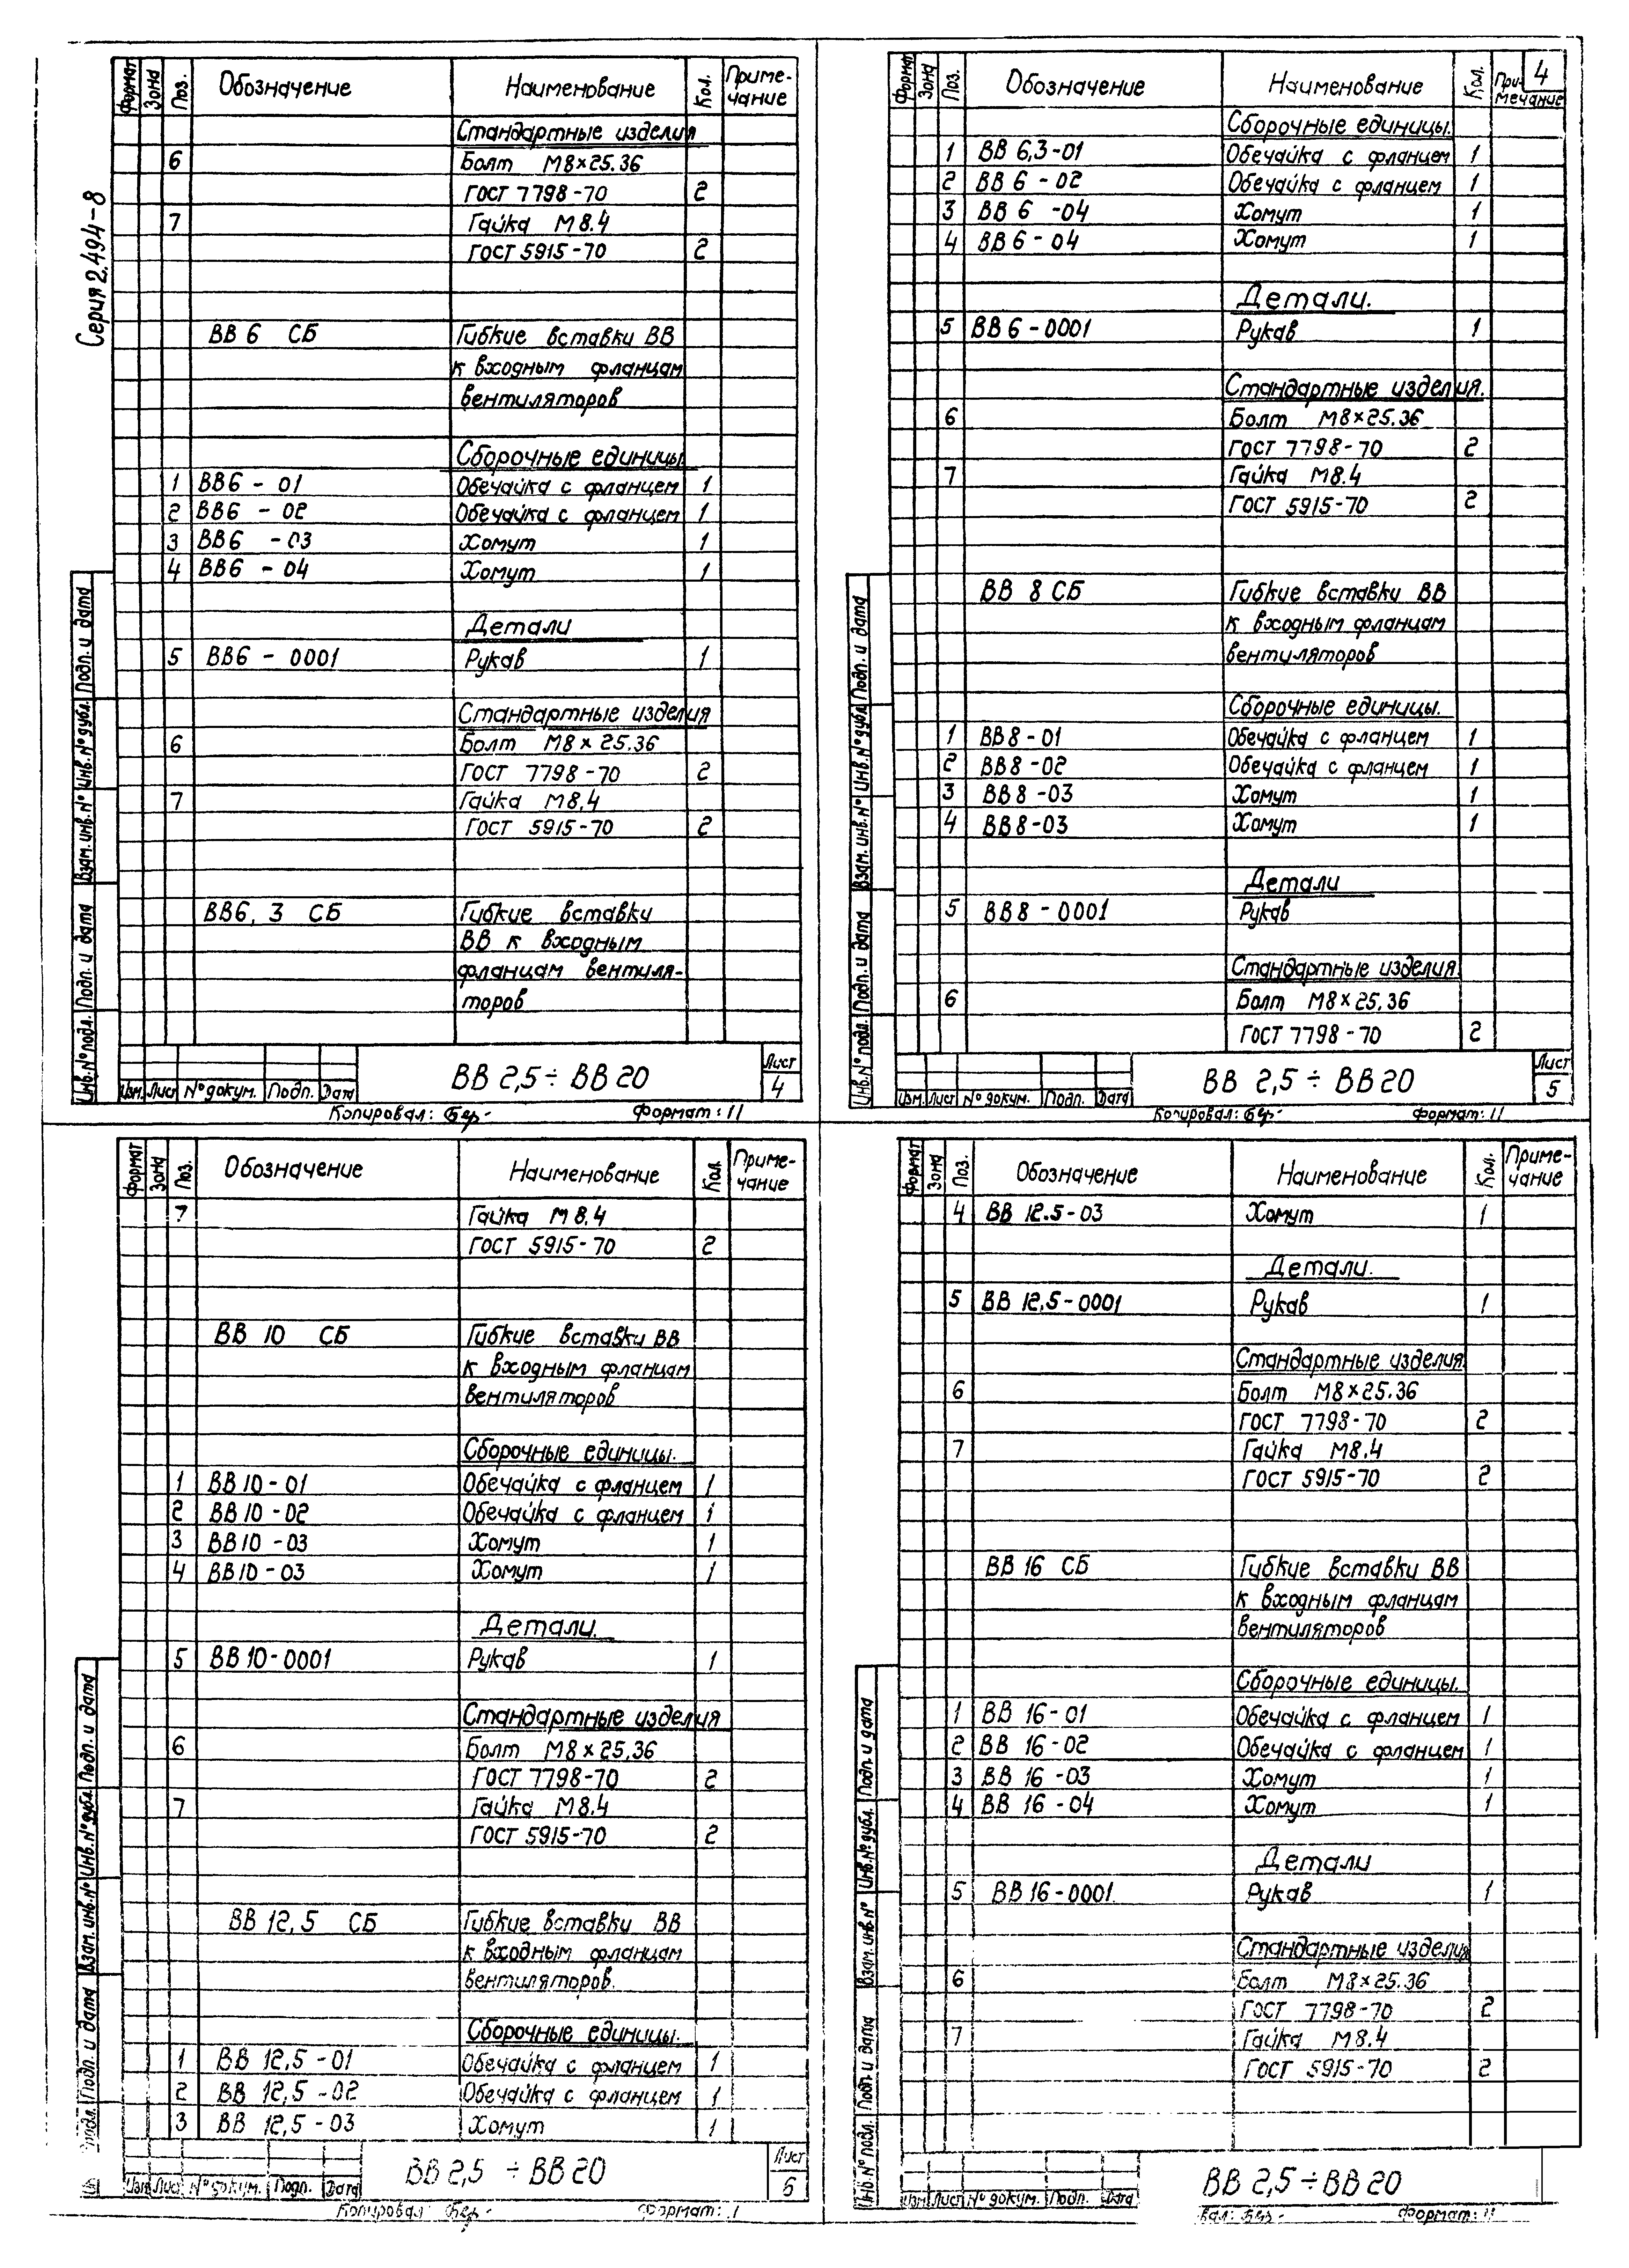 Серия 2.494-8
Формат Зона Поз. Обозначение Наименование Кол. Приме-
чание
Стандартные изделия
6 Болт М8×25.36
ГОСТ 7798-70 2
7 Гайка М8.4
ГОСТ 5915-70 2
ВВ 6 СБ Гибкие вставки ВВ
к входным фланцам
вентиляторов
Сборочные единицы.
1 ВВ6 - 01 Обечайка с фланцем 1
2 ВВ6 - 02 Обечайка с фланцем 1
3 ВВ6 - 03 Хомут 1
4 ВВ6 - 04 Хомут 1
Детали
5 ВВ6 - 0001 Рукав 1
Стандартные изделия
6 Болт М8×25.36
ГОСТ 7798-70 2
7 Гайка М8.4
ГОСТ 5915-70 2
ВВ6,3 СБ Гибкие вставки
ВВ к входным
фланцам вентиля-
торов
Инв.№ подл. Подп. и дата Взам. инв.№ Инв.№ дубл. Подп. и дата
Изм. Лист № докум. Подп. Дата
ВВ 2,5 ÷ ВВ 20
Лист
4
Копировал: Формат: 11
4
Формат Зона Поз. Обозначение Наименование Кол. При-
мечание
Сборочные единицы.
1 ВВ 6,3-01 Обечайка с фланцем 1
2 ВВ 6 - 02 Обечайка с фланцем 1
3 ВВ 6 -04 Хомут 1
4 ВВ 6 - 04 Хомут 1
Детали.
5 ВВ 6-0001 Рукав 1
Стандартные изделия.
6 Болт М8×25.36
ГОСТ 7798-70 2
7 Гайка М8.4
ГОСТ 5915-70 2
ВВ 8 СБ Гибкие вставки ВВ
к входным фланцам
вентиляторов
Сборочные единицы.
1 ВВ8-01 Обечайка с фланцем 1
2 ВВ8-02 Обечайка с фланцем 1
3 ВВ8-03 Хомут 1
4 ВВ8-03 Хомут 1
Детали
5 ВВ8-0001 Рукав 1
Стандартные изделия.
6 Болт М8×25,36
ГОСТ 7798-70 2
Инв.№ подл. Подп. и дата Взам. инв.№ Инв.№ дубл. Подп. и дата
Изм. Лист № докум. Подп. Дата
ВВ 2,5 ÷ ВВ20
Лист
5
Копировал: Формат: 11
Формат Зона Поз. Обозначение Наименование Кол. Приме-
чание
7 Гайка М8.4
ГОСТ 5915-70 2
ВВ 10 СБ Гибкие вставки ВВ
к входным фланцам
вентиляторов
Сборочные единицы.
1 ВВ 10-01 Обечайка с фланцем 1
2 ВВ 10-02 Обечайка с фланцем 1
3 ВВ10-03 Хомут 1
4 ВВ10-03 Хомут 1
Детали.
5 ВВ 10-0001 Рукав 1
Стандартные изделия
6 Болт М8×25,36
ГОСТ 7798-70 2
7 Гайка М8.4
ГОСТ 5915-70 2
ВВ 12,5 СБ Гибкие вставки ВВ
к входным фланцам
вентиляторов.
Сборочные единицы.
1 ВВ 12,5-01 Обечайка с фланцем 1
2 ВВ 12,5-02 Обечайка с фланцем 1
3 ВВ 12,5-03 Хомут 1
подл. Подп. и дата Взам. инв.№ Инв.№ дубл. Подп. и дата
Изм Лист № докум. Подп. Дата
ВВ 2,5 ÷ ВВ 20
Лист
6
Копировал: Формат:
Формат Зона Поз. Обозначение Наименование Кол. Приме-
чание
4 ВВ 12.5-03 Хомут 1
Детали.
5 ВВ 12,5-0001 Рукав 1
Стандартные изделия
6 Болт М8×25.36
ГОСТ 7798-70 2
7 Гайка М8.4
ГОСТ 5915-70 2
ВВ 16 СБ Гибкие вставки ВВ
к входным фланцам
вентиляторов
Сборочные единицы.
1 ВВ 16-01 Обечайка с фланцем 1
2 ВВ 16-02 Обечайка с фланцем 1
3 ВВ 16-03 Хомут 1
4 ВВ 16-04 Хомут 1
Детали
5 ВВ 16-0001 Рукав 1
Стандартные изделия
6 Болт М8×25.36
ГОСТ 7798-70 2
7 Гайка М8.4
ГОСТ 5915-70 2
Инв.№ подл. Подп. и дата Взам. инв.№ Инв.№ дубл. Подп. и дата
Изм Лист № докум. Подп. Дата
ВВ 2,5 ÷ ВВ 20
вал: Формат: 11